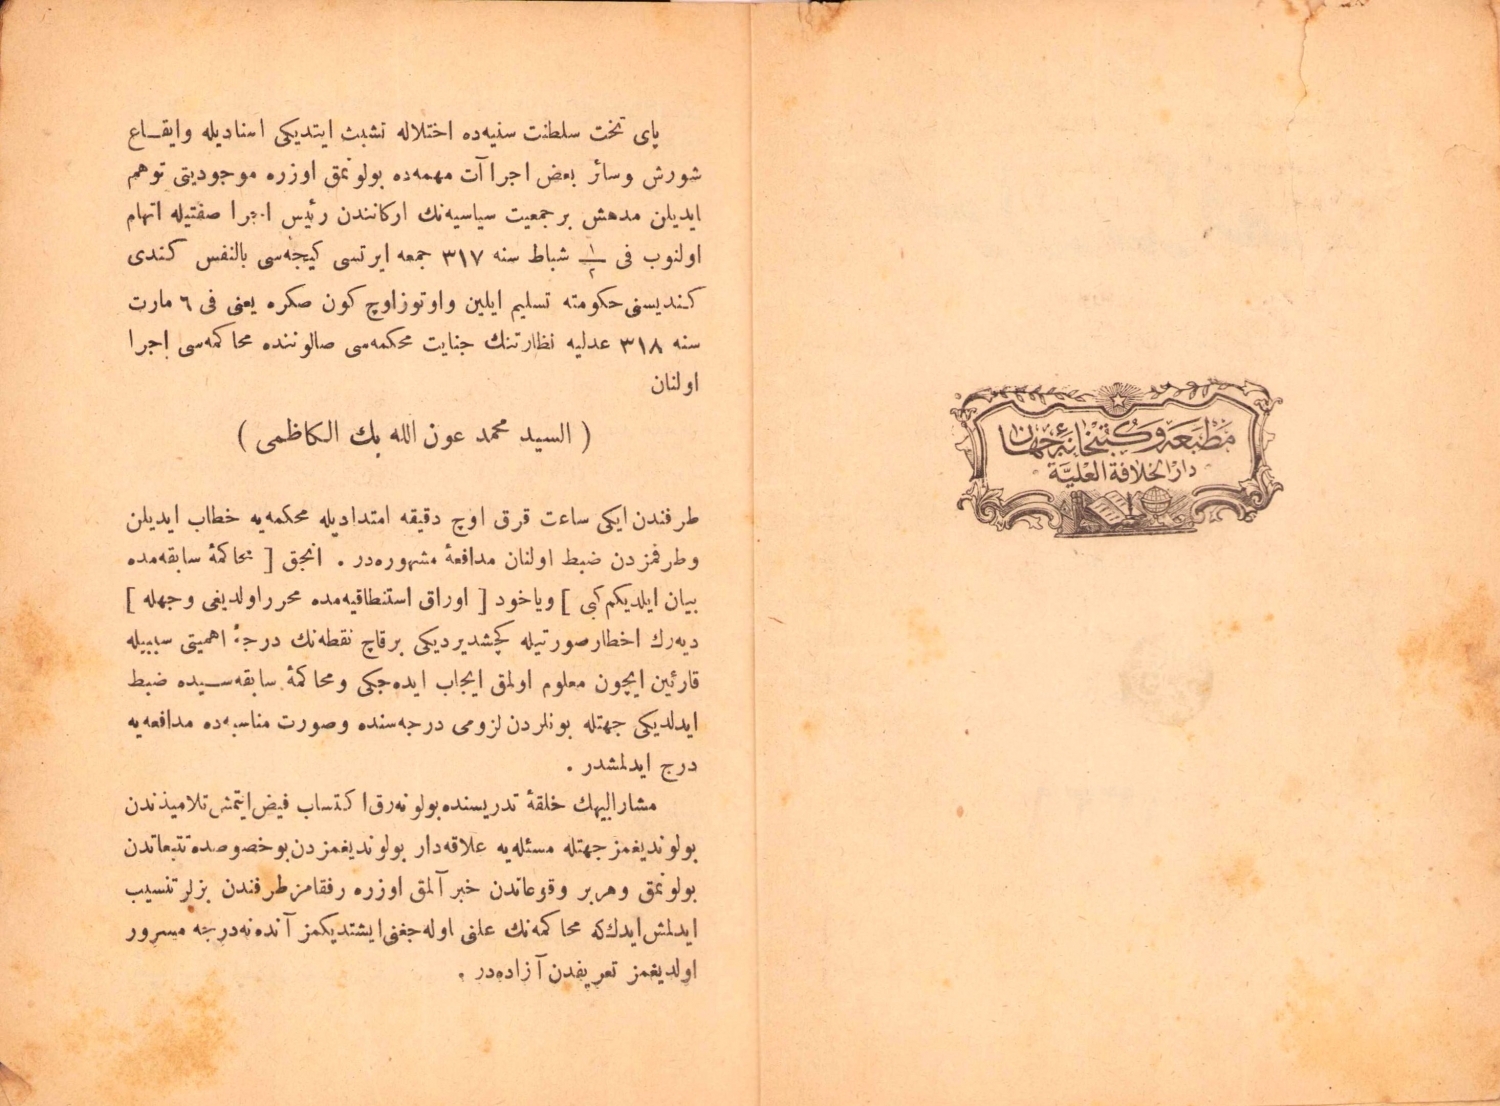 مطبعه و كتبخانهٔ جهان
دار الخلافة العليّة
پای تخت سلطنت سنیه‌ده اختلاله تشبث ایتدیکی اسنادیله وایقاع
شورش وسائر بعض اجراآت مهمه‌ده بولونمق اوزره موجودیتی توهم
ایدیلن مدهش برجمعیت سیاسیه‌نك ارکانندن رئیس اجرا صفتیله اتهام
اولنوب فی ١/٢ شباط سنه ٣١٧ جمعه ایرتسی کیجه‌سی بالنفس کندی
کندیسنی حکومته تسلیم ایلین واوتوزاوچ کون صکره یعنی فی ٦ مارت
سنه ٣١٨ عدلیه نظارتنك جنایت محکمه‌سی صالوننده محاکمه‌سی اجرا
اولنان
( السید محمد عون الله بك الکاظمی )
طرفندن ایکی ساعت قرق اوچ دقیقه امتدادیله محکمه‌یه خطاب ایدیلن
وطرفمزدن ضبط اولنان مدافعهٔ مشهوره‌در . انجق [ محاکمهٔ سابقه‌مده
بیان ایلدیکم کبی ] ویاخود [ اوراق استنطاقیه‌مده محرر اولدیغی وجهله ]
دیه‌رك اخطار صورتیله کچشدیردیکی برقاچ نقطه‌نك درجهٔ اهمیتی سببیله
قارئین ایچون معلوم اولمق ایجاب ایده‌جکی ومحاکمهٔ سابقه‌سیده ضبط
ایدلدیکی جهتله بونلردن لزومی درجه‌سنده وصورت مناسبه‌ده مدافعه‌یه
درج ایدلمشدر .
مشارالیهك خلقهٔ تدریسنده بولونه‌رق اکتساب فیض ایتمش تلامیذندن
بولوندیغمز جهتله مسئله‌یه علاقه‌دار بولوندیغمزدن بو خصوصده تتبعاتدن
بولونمق وهربر وقوعاتدن خبر آلمق اوزره رفقامز طرفندن بزلر تنسیب
ایدلمش ایدك که محاکمه‌نك علنی اوله‌جغنی ایشتدیکمز آنده نه‌درجه مسرور
اولدیغمز تعریفدن آزاده‌در .